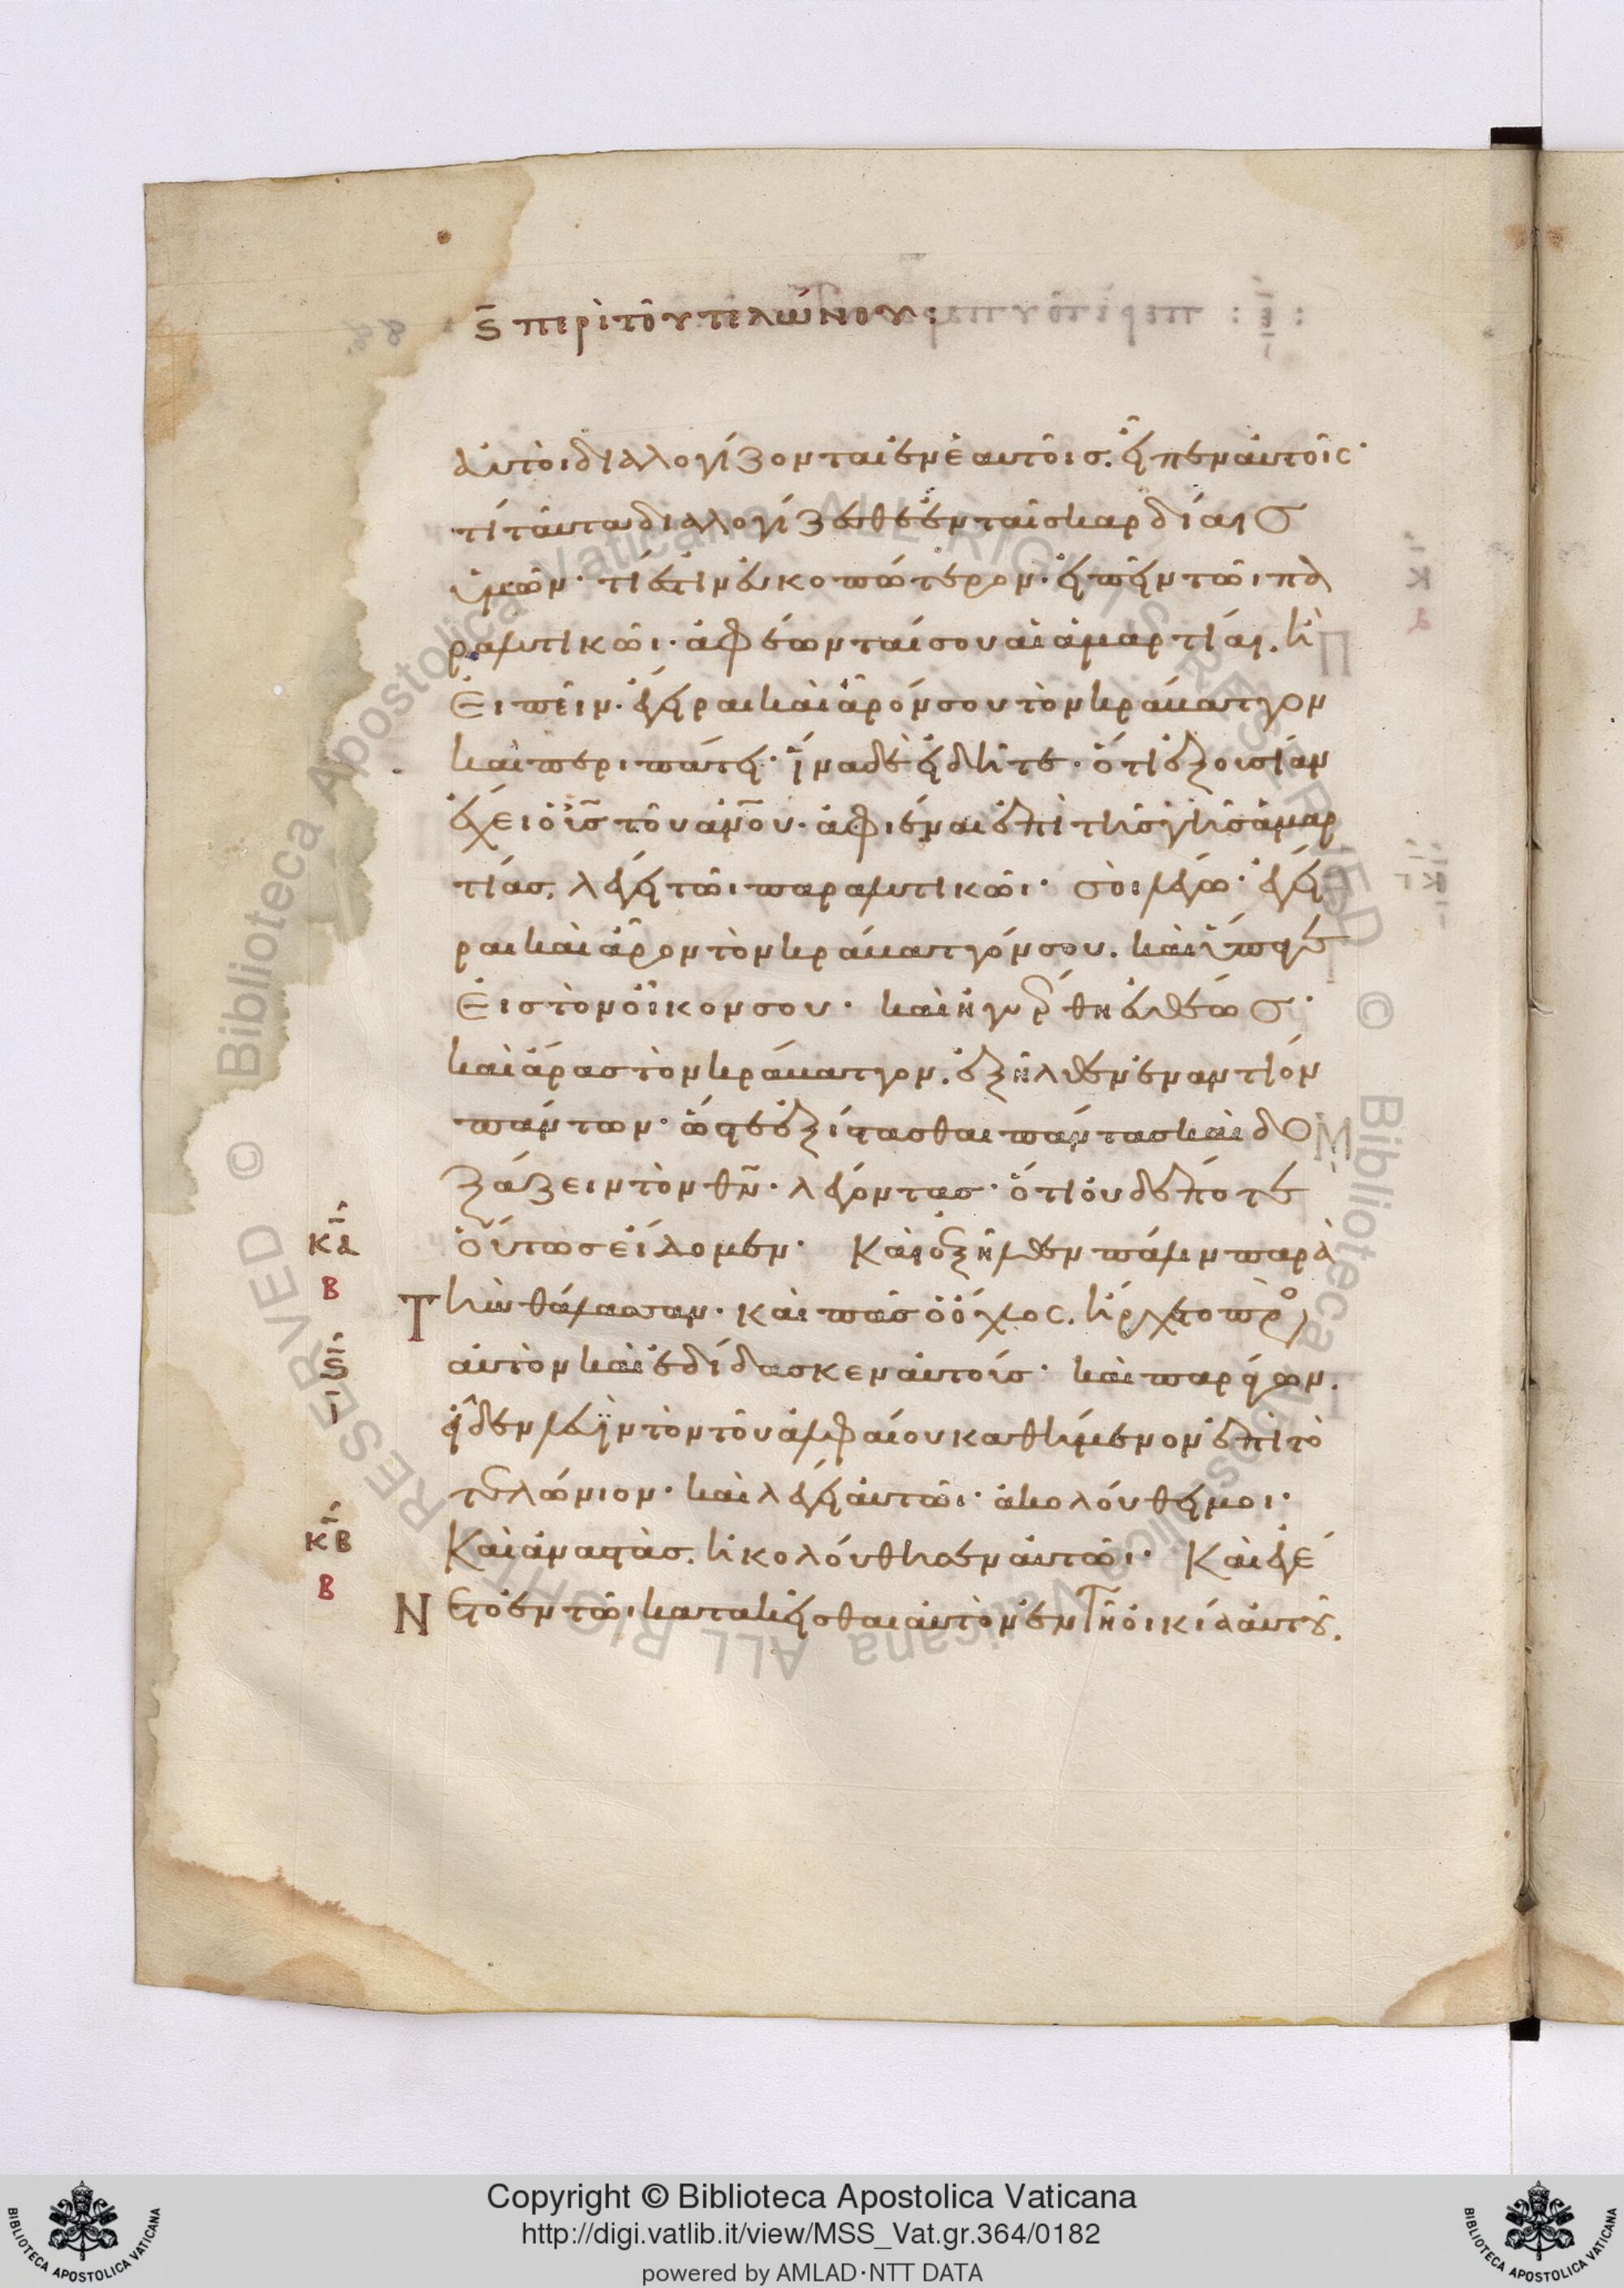 ς περὶ τοῦ τελώνου:
αὐτοὶ διαλογίζονται ἐν ἑαυτοῖς. εἶπεν αὐτοῖς·
τί ταῦτα διαλογίζεσθε ἐν ταῖς καρδίαις
ὑμῶν· τί ἐστιν εὐκοπώτερον· εἰπεῖν τῶι πα
ραλυτικῶι· ἀφέωνταί σου αἱ ἁμαρτίαι. ἢ
εἰπεῖν· ἔγειραι καὶ ἆρόν σου τὸν κράβαττον
καὶ περιπάτει· ἵνα δὲ εἰδῆτε· ὅτι ἐξουσίαν
ἔχει ὁ υἱς τοῦ ανου· ἀφιέναι ἐπὶ τῆς γῆς ἁμαρ
τίας. λέγει τῶι παραλυτικῶι· σοὶ λέγω· ἔγει
ραι καὶ ἆρον τὸν κράβαττόν σου. καὶ ὕπαγε
εἰς τὸν οἶκον σου· καὶ ἠγέρθη εὐθέως·
καὶ ἄρας τὸν κράβαττον. ἐξῆλθεν ἐναντίον
πάντων· ὥστε ἐξίστασθαι πάντας καὶ δο
ξάζειν τὸν θν· λέγοντας· ὅτι οὐδέποτε
οὕτως εἴδομεν· Καὶ ἐξῆλθεν πάλιν παρὰ
κα
β
τὴν θάλασσαν· καὶ πᾶς ὁ ὄχλος. ἤρχετο πρὸς
ς
αὐτὸν καὶ ἐδίδασκεν αὐτούς· καὶ παράγων.
εἶδεν λευῒν τὸν τοῦ ἀλφαίου καθήμενον ἐπὶ τὸ
τελώνιον· καὶ λέγει αὐτῶι· ἀκολούθει μοι·
κβ
Καὶ ἀναστὰς. ἠκολούθησεν αὐτῶι· Καὶ ἐγέ
β
νετο ἐν τῶι κατακεῖσθαι αὐτὸν ἐν τῆ οἰκία αὐτοῦ.
Copyright © Biblioteca Apostolica Vaticana
http://digi.vatlib.it/view/MSS_Vat.gr.364/0182
powered by AMLAD·NTT DATA
BIBLIOTECA APOSTOLICA VATICANA
BIBLIOTECA APOSTOLICA VATICANA
© Biblioteca Apostolica Vaticana ALL RIGHTS RESERVED © Biblioteca Apostolica Vaticana ALL RIGHTS RESERVED